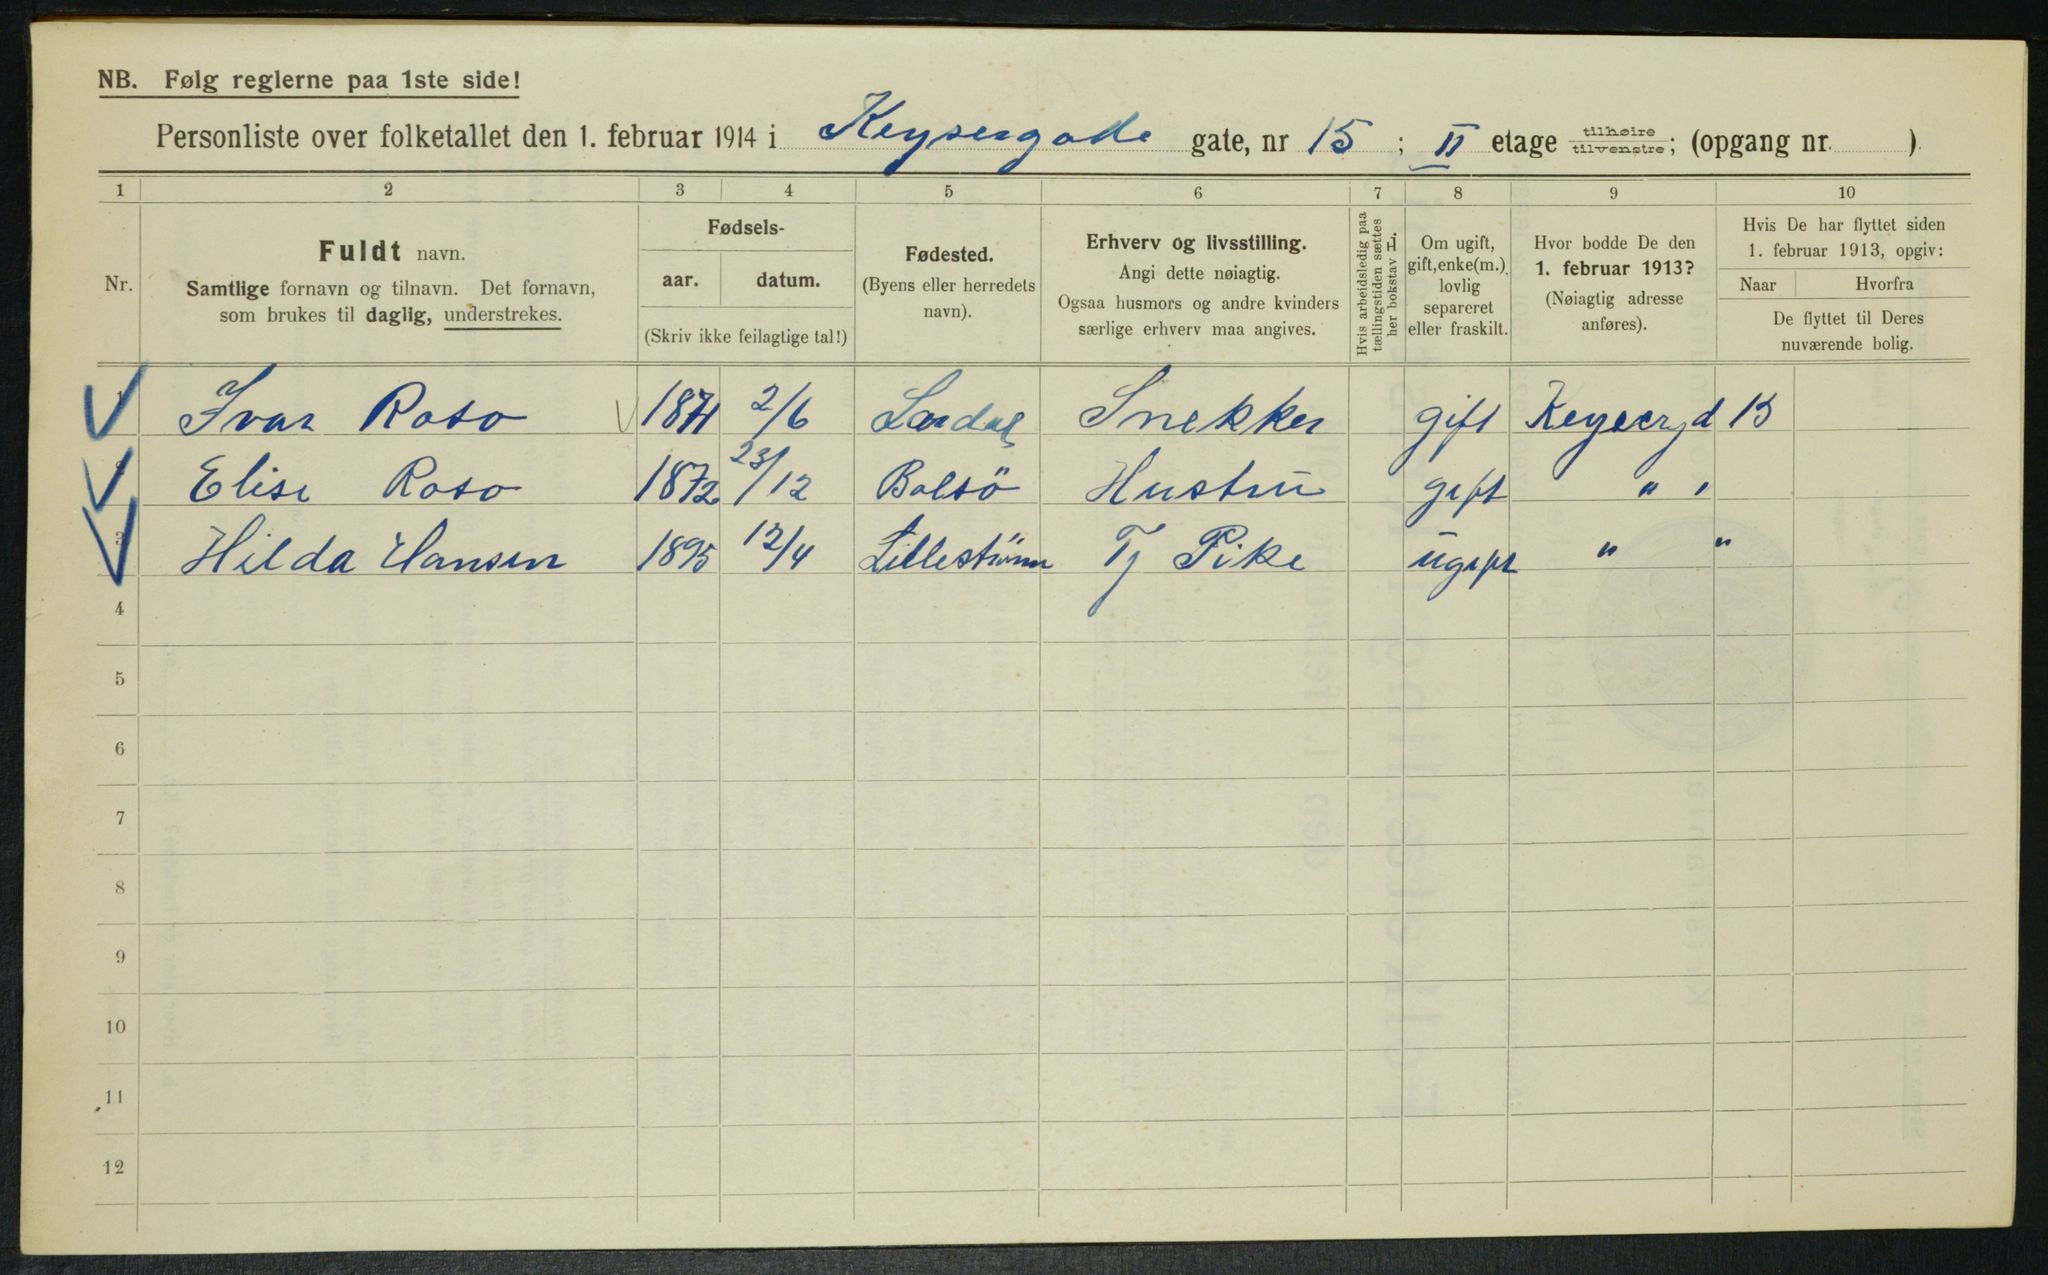 NB. Følg reglerne paa 1ste side!
Personliste over folketallet den 1. februar 1914 i Keysergade gate, nr 15 ; II etage tilhøire tilvenstre; (opgang nr. )
1 2 3 4 5 6 7 8 9 10
Nr.
Fuldt navn.
Samtlige fornavn og tilnavn. Det fornavn,
som brukes til daglig, understrekes.
Fødsels-
aar. datum.
(Skriv ikke feilagtige tal!)
Fødested.
(Byens eller herredets
navn).
Erhverv og livsstilling.
Angi dette nøiagtig.
Ogsaa husmors og andre kvinders
særlige erhverv maa angives.
Hvis arbeidsledig paa
tællingstiden sættes
her bokstav L.
Om ugift,
gift, enke(m.),
lovlig
separeret
eller fraskilt.
Hvor bodde De den
1. februar 1913?
(Nøiagtig adresse
anføres).
Hvis De har flyttet siden
1. februar 1913, opgiv:
Naar Hvorfra
De flyttet til Deres
nuværende bolig.
1 Ivar Roso 1871 2/6 Snekker gift 15
2 Elise Roso 1872 23/12 Bolsö Hustru gift " "
3 Hilda Hansen 1895 12/4 Lillestrøm Tj Pike ugift " "
4
5
6
7
8
9
10
11
12